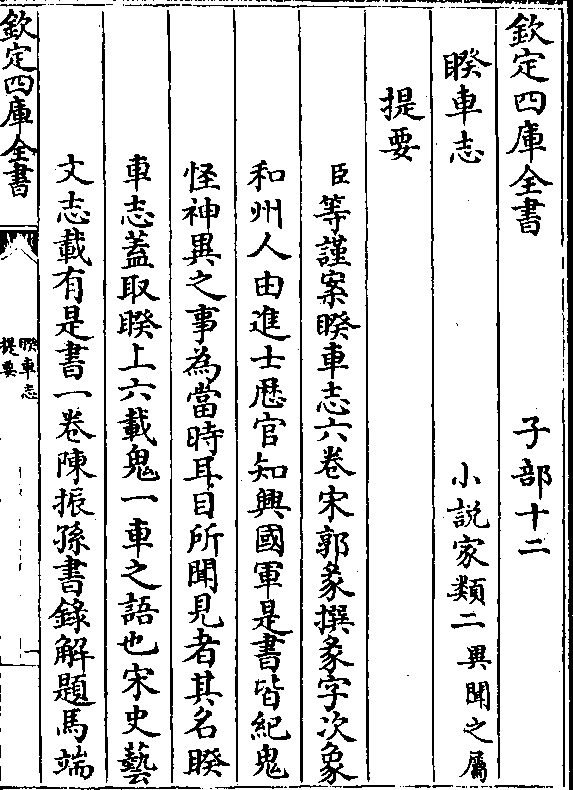 欽定四庫全書 子部十二
睽車志 小説家類二 異聞之屬
提要
臣等謹案睽車志六卷宋郭彖撰彖字次象
和州人由進士歴官知興國軍是書皆紀鬼
怪神異之事為當時耳目所聞見者其名睽
車志蓋取睽上六載鬼一車之語也宋史藝
文志載有是書一卷陳振孫書錄解題馬端
欽定四庫全書
睽車志
提要
一